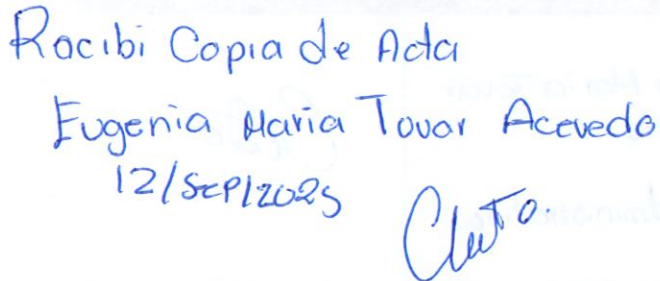 Recibi Copia de Acta
Eugenia Maria Tovar Acevedo
12/SEP/2025